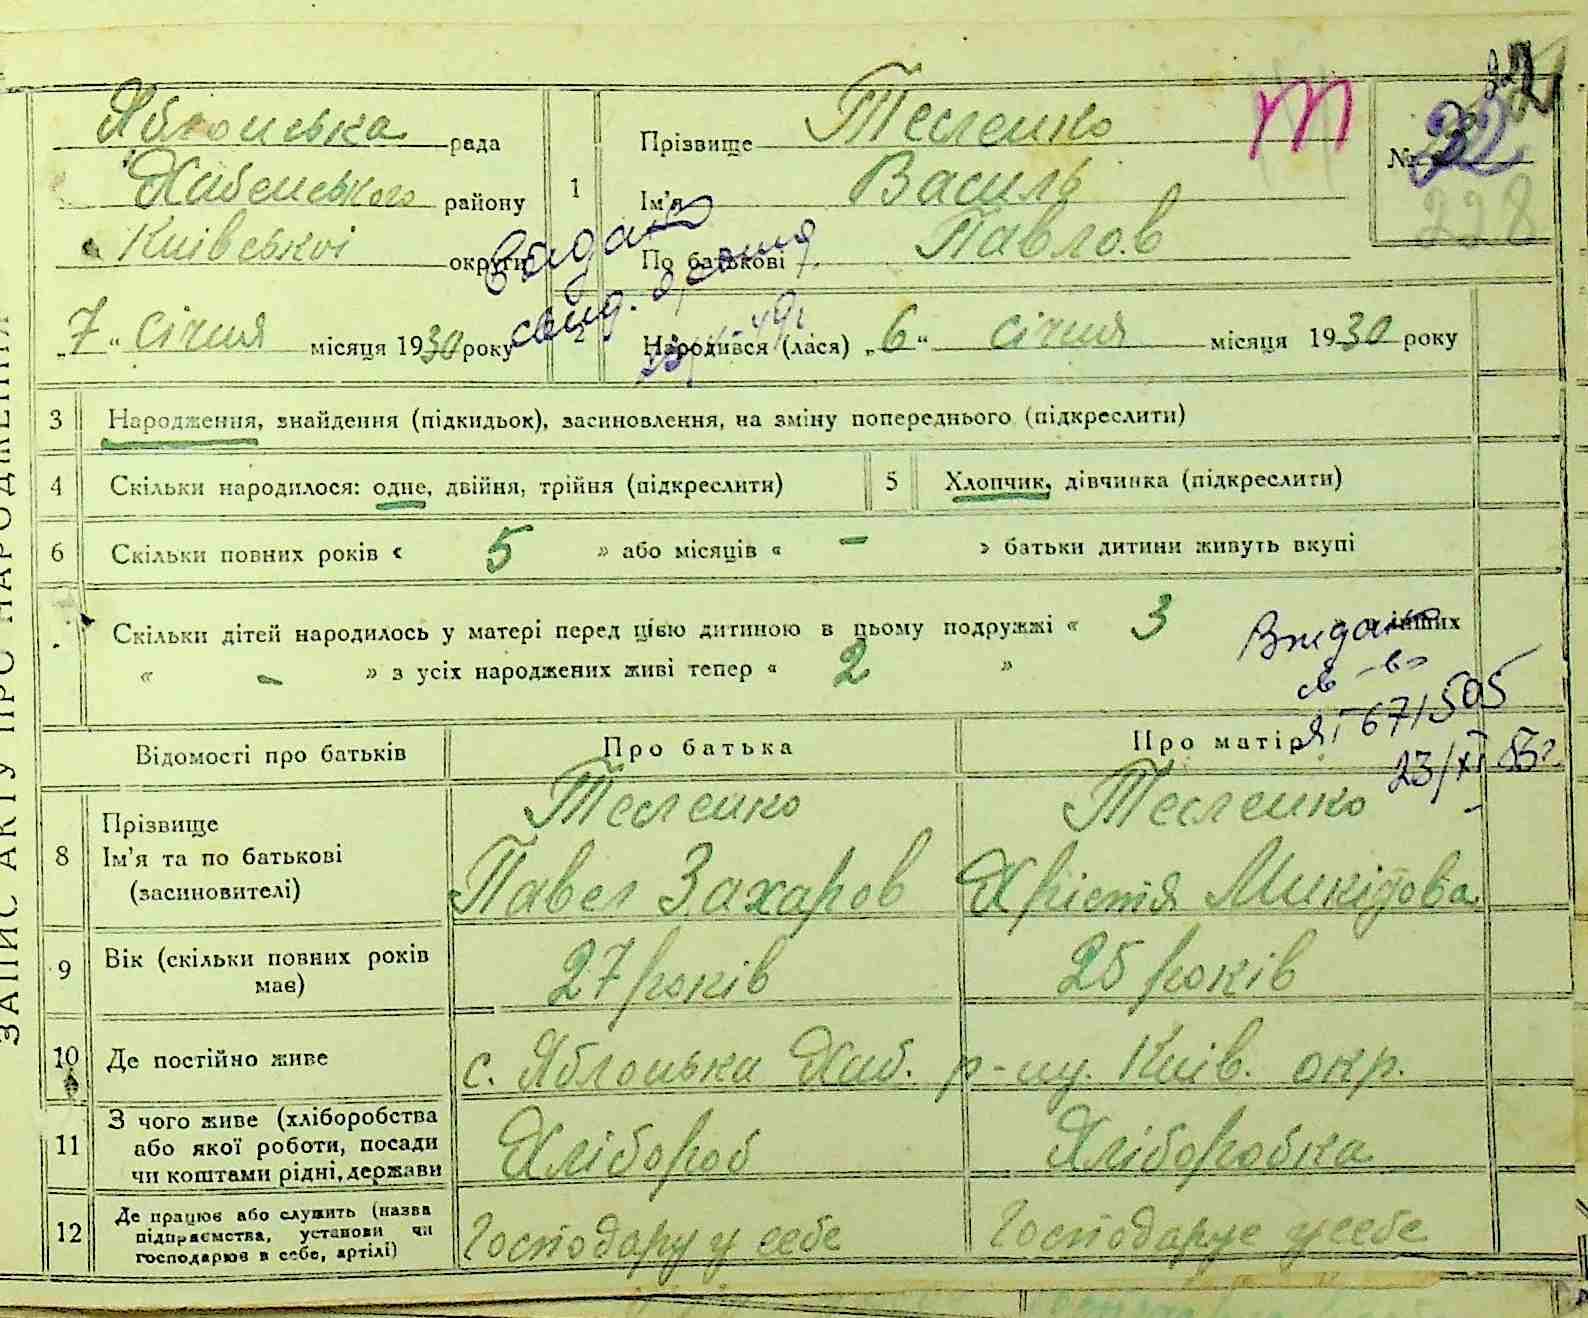 ЗАПИС АКТУ ПРО НАРОДЖЕННЯ
Яблонська рада
Хабенського району
Київської округи
„7“ січня місяця 1930 року
1
Прізвище Тесленко
Ім'я Василь
По батькові Павлов
№ 32
228
Видано
свид.
2
Народився (лася) „6“ січня місяця 1930 року
3 Народження, знайдення (підкидьок), засиновлення, на зміну попереднього (підкреслити)
4 Скільки народилося: одне, двійня, трійня (підкреслити)
5 Хлопчик, дівчинка (підкреслити)
6 Скільки повних років « 5 » або місяців « – » батьки дитини живуть вкупі
Скільки дітей народилось у матері перед цією дитиною в цьому подружжі « 3 інших
« – » з усіх народжених живі тепер « 2 »
Видано
св-во
ЯТ 671505
23/XI 53г.
Відомості про батьків
Про батька
Про матір
8 Прізвище
Ім'я та по батькові
(засиновителі)
Тесленко
Павел Захаров
Тесленко
Хрістя Микітова
9 Вік (скільки повних років
має)
27 років
25 років
10 Де постійно живе
с. Яблонька Хаб. р-ну Київ. окр.
11 З чого живе (хліборобства
або якої роботи, посади
чи коштами рідні, держави
Хлібороб
Хліборобка
12 Де працює або служить (назва
підприємства, установи чи
господарює в себе, артілі)
Господару у себе
Господарує у себе